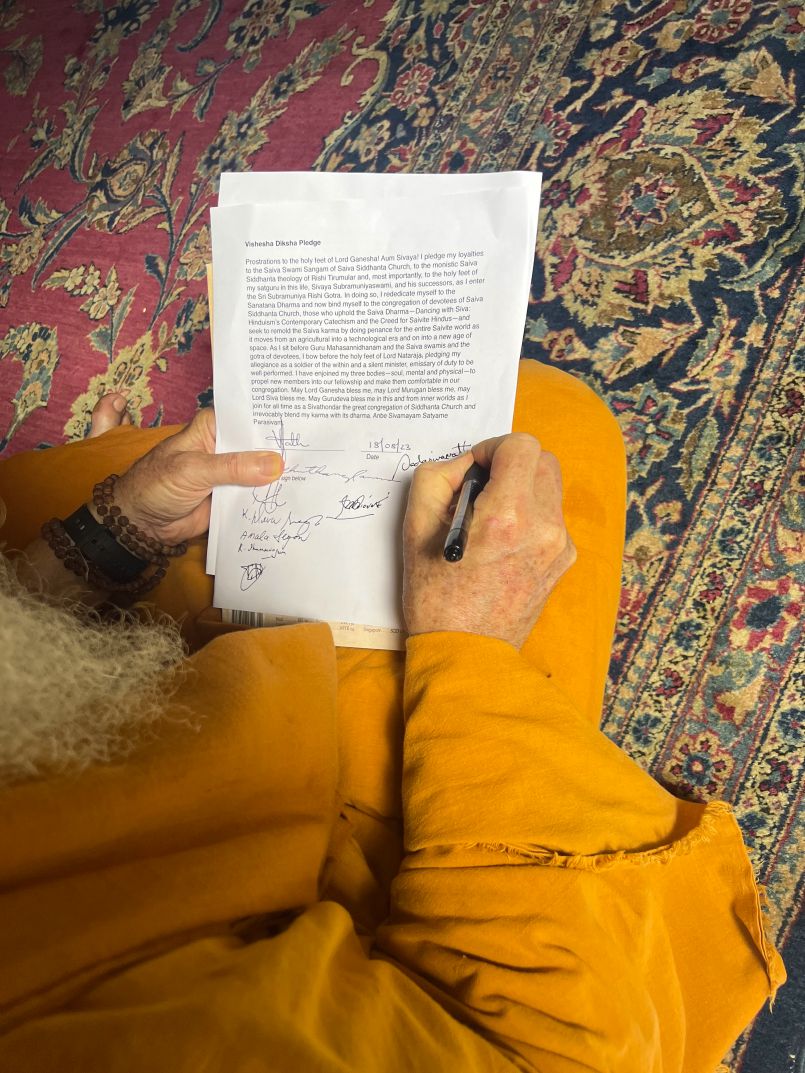 Vishesha Diksha Pledge
Prostrations to the holy feet of Lord Ganesha! Aum Sivaya! I pledge my loyalties
to the Saiva Swami Sangam of Saiva Siddhanta Church, to the monistic Saiva
Siddhanta theology of Rishi Tirumular and, most importantly, to the holy feet of
my satguru in this life, Sivaya Subramuniyaswami, and his successors, as I enter
the Sri Subramuniya Rishi Gotra. In doing so, I rededicate myself to the
Sanatana Dharma and now bind myself to the congregation of devotees of Saiva
Siddhanta Church, those who uphold the Saiva Dharma—Dancing with Siva:
Hinduism's Contemporary Catechism and the Creed for Saivite Hindus—and
seek to remold the Saiva karma by doing penance for the entire Saivite world as
it moves from an agricultural into a technological era and on into a new age of
space. As I sit before Guru Mahasannidhanam and the Saiva swamis and the
gotra of devotees, I bow before the holy feet of Lord Nataraja, pledging my
allegiance as a soldier of the within and a silent minister, emissary of duty to be
well performed. I have enjoined my three bodies—soul, mental and physical—to
propel new members into our fellowship and make them comfortable in our
congregation. May Lord Ganesha bless me, may Lord Murugan bless me, may
Lord Siva bless me. May Gurudeva bless me in this and from inner worlds as I
join for all time as a Sivathondar the great congregation of Siddhanta Church and
irrevocably blend my karma with its dharma. Anbe Sivamayam Satyame
Parasivam!
18/08/23
Date
sign below
Singapore